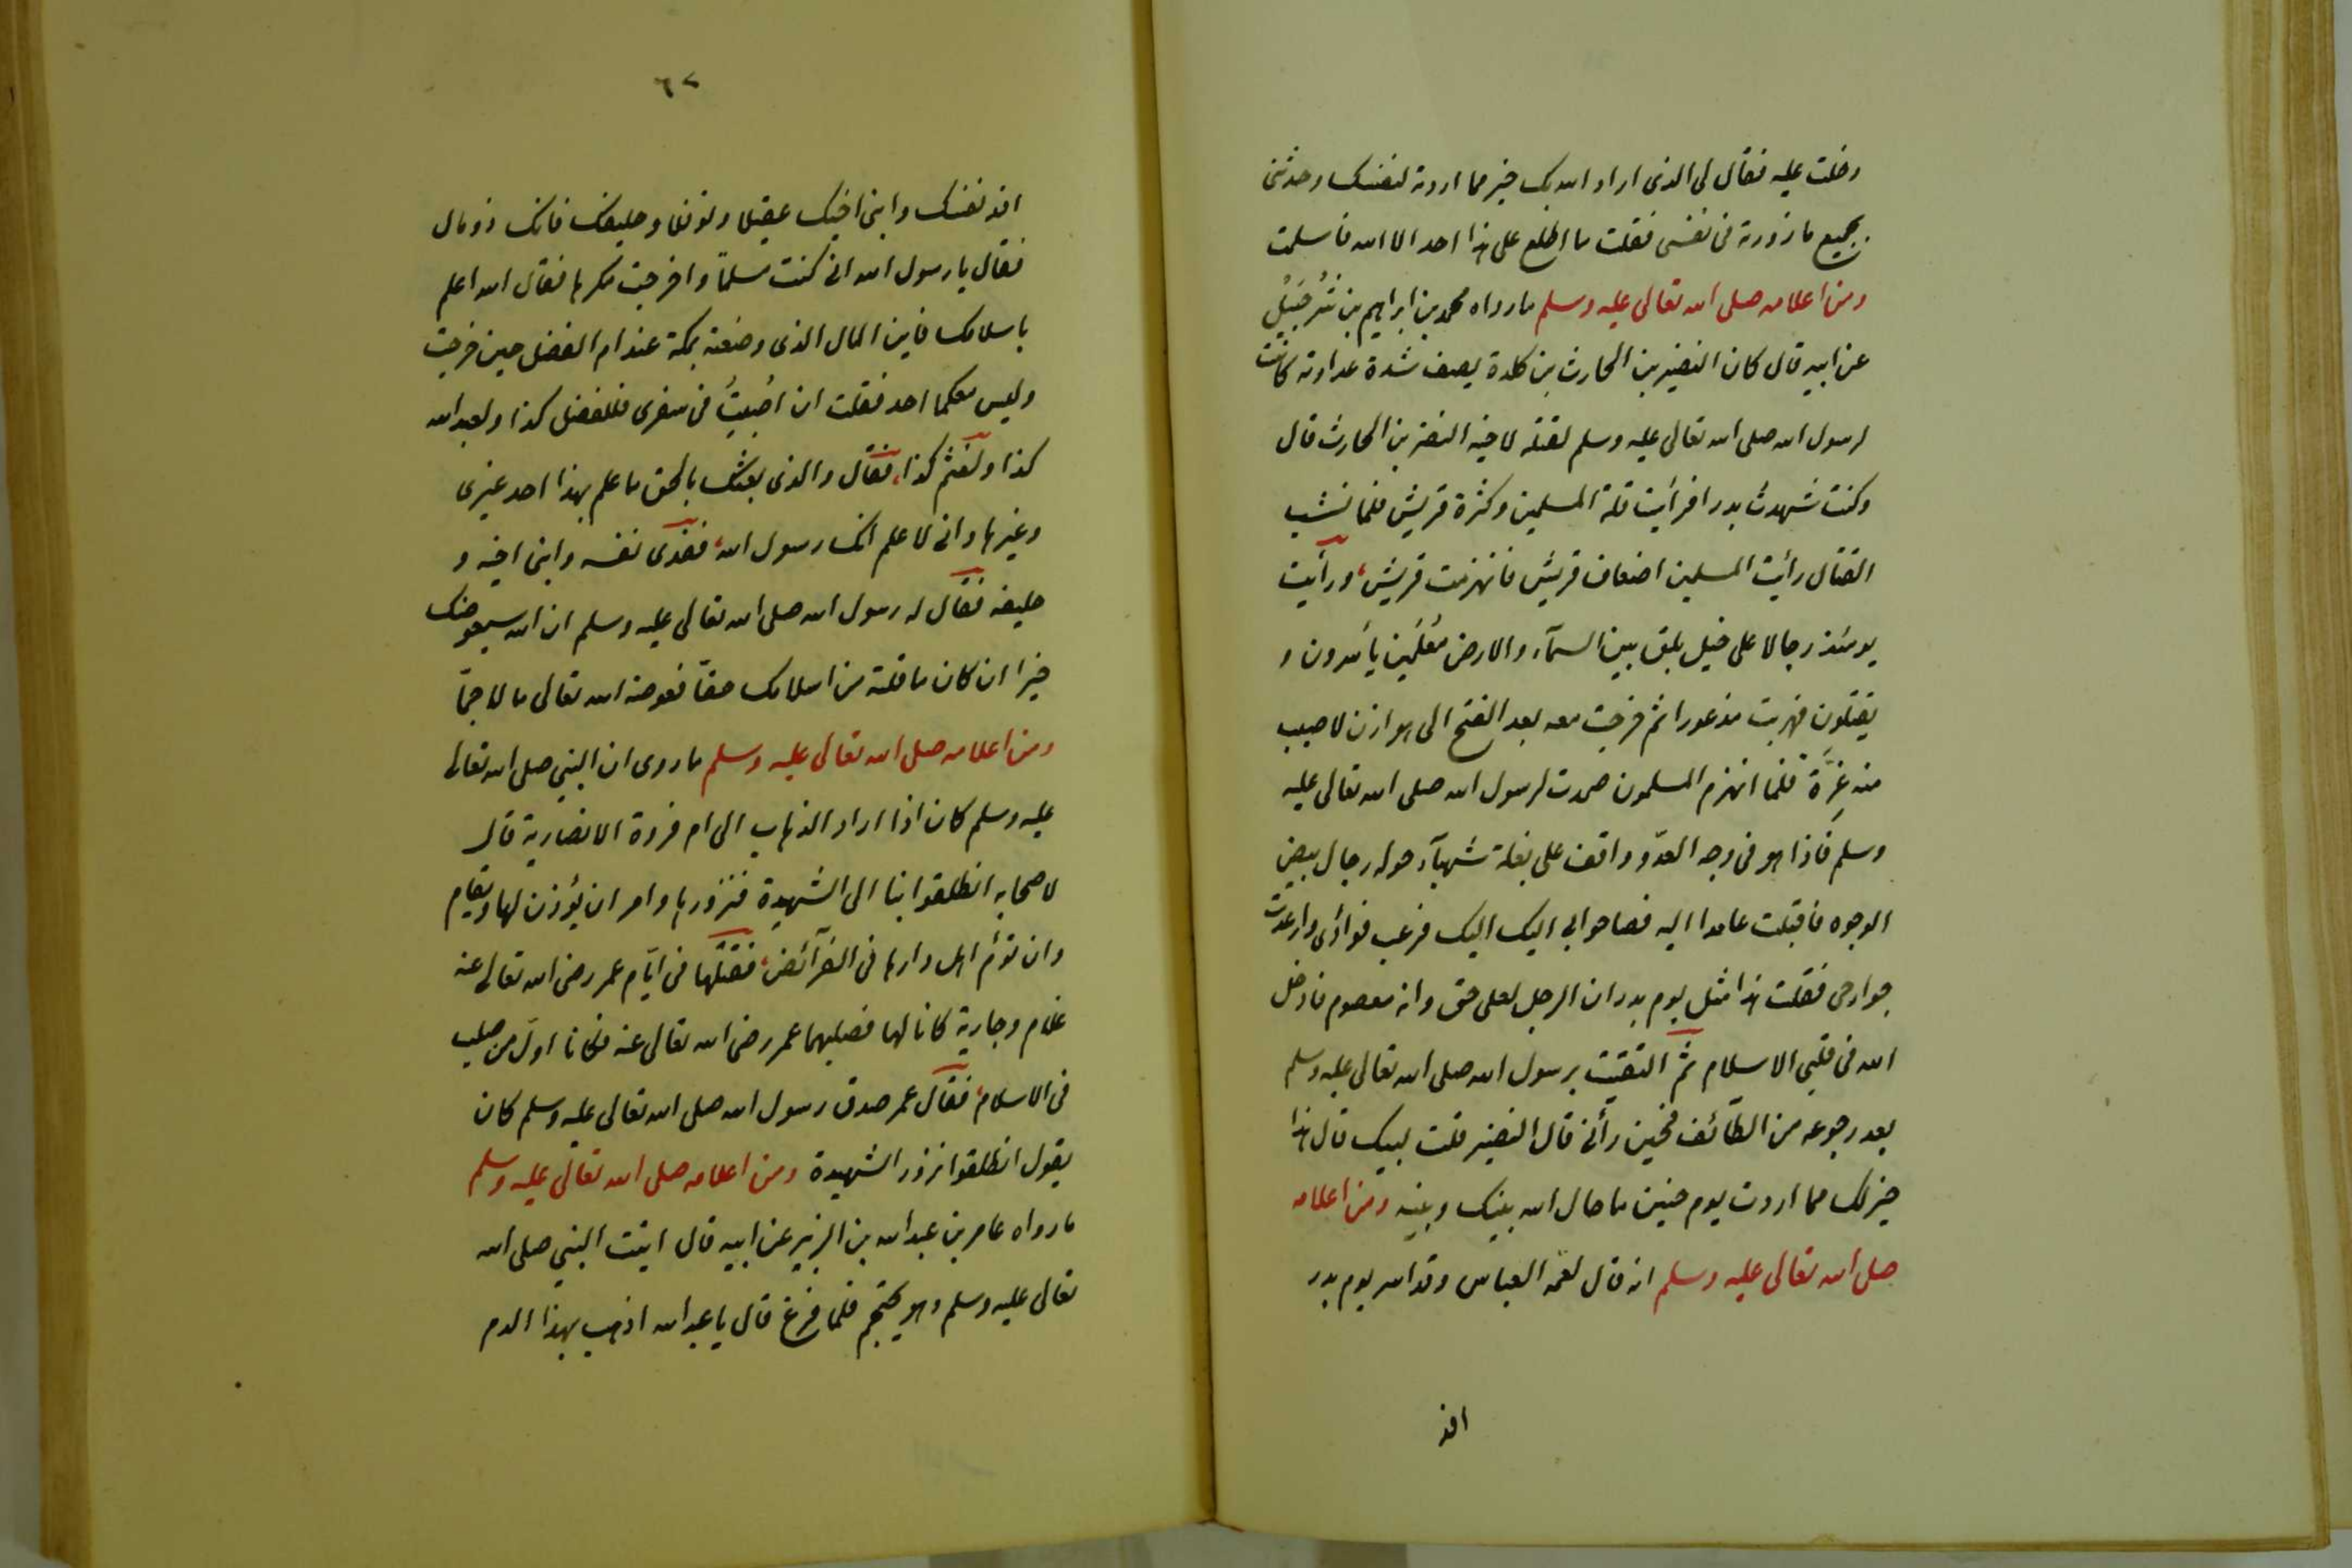 دخلت عليه فقال لى الذى اراد الله بك خير مما اردته لنفسك وحدثنى
بجميع ما زورته فى نفسى فقلت ما اطلع على هذا احد الا الله فاسلمت
ومن اعلامه صلى الله تعالى عليه وسلم ما رواه محمد بن ابراهيم بن شُرحَبيلُ
عن ابيه قال كان النضير بن الحارث بن كلدة يصف شدة عداوته كانت
لرسول الله صلى الله تعالى عليه وسلم لقتله لاخيه النضر بن الحارث قال
وكنت شهدت بدرا فرأيت قلة المسلمين وكثرة قريش فلما نشب
القتال رأيت المسلمين اضعاف قريش فانهزمت قريش، ورأيت
يومئذ رجالا على خيل بلق بين السمآء والارض مُعْلَمين يأسرون و
يقتلون فهربت مذعورا ثم خرجت معه بعد الفتح الى هوازن لاصيب
منه غِرَّة فلما انهزم المسلمون صمدت لرسول الله صلى الله تعالى عليه
وسلم فاذا هو فى وجه العدّو واقف على بغلة شهبآء حوله رجال بيض
الوجوه فاقبلت عامدا اليه فصاحوا بى اليك اليك فرعب فوادى وارعدت
جوارحى فقلت هذا مثل يوم بدر ان الرجل لعلى حق وانه معصوم فادخل
الله فى قلبى الاسلام ثم التقيت برسول الله صلى الله تعالى عليه وسلم
بعد رجوعه من الطآئف فحين رأنى قال النضير قلت لبيك قال هذا
خير لك مما اردت يوم حنين ما حال الله بينك وبينه ومن اعلامه
صلى الله تعالى عليه وسلم انه قال لعّمه العباس وقد اسر يوم بدر
افد
٦٧
افد نفسك وابنى اخيك عقيلا ونوفلا وحليفك فانك ذو مال
فقال يا رسول الله انى كنت مسلمًا واخرجت مكرها فقال الله اعلم
باسلامك فاين المال الذى وضعته بمكة عند ام الفضل حين خرجت
وليس معكما احد فقلت ان اُصُبتُ فى سفرى فللفضل كذا ولعبد الله
كذا ولقثم كذا، فقال والذى بعثك بالحق ما علم بهذا احد غيرى
وغيرها وانى لاعلم انك رسول الله، ففدى نفسه وابنى اخيه و
حليفه فقال له رسول الله صلى الله تعالى عليه وسلم ان الله سيعوضك
خيرا ان كان ما قلته من اسلامك حقاً فعوضه الله تعالى مالا جمّا
ومن اعلامه صلى الله تعالى عليه وسلم ما روى ان النبى صلى الله تعالى
عليه وسلم كان اذا اراد الذهاب الى ام فروة الانصارية قال
لاصحابه انطلقوا بنا الى الشهيدة فنزورها وامر ان يؤذن لها ويقام
وان تؤم اهل دارها فى الفرآئض، فقتلها فى ايّام عمر رضى الله تعالى عنه
غلام وجارية كانا لها فصلبهما عمر رضى الله تعالى عنه فكانا اول من صلب
فى الاسلام، فقال عمر صدق رسول الله صلى الله تعالى عليه وسلم كان
يقول انطلقوا نزور الشهيدة ومن اعلامه صلى الله تعالى عليه وسلم
ما رواه عامر بن عبد الله بن الزبير عن ابيه قال اتيت النبى صلى الله
تعالى عليه وسلم وهو يحتجم فلما فرغ قال يا عبد الله اذهب بهذا الدم